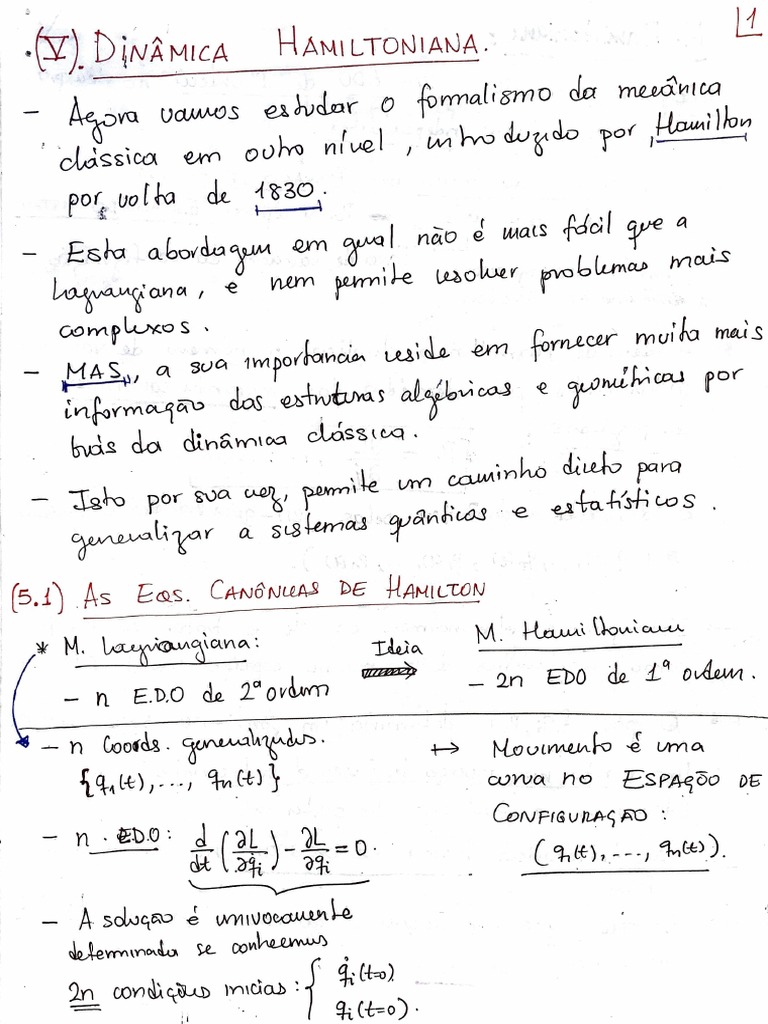 1
(V). DINÂMICA HAMILTONIANA.
- Agora vamos estudar o formalismo da mecânica
clássica em outro nível, introduzido por, Hamilton
por volta de 1830.
- Esta abordagem em geral não é mais fácil que a
Lagrangiana, e nem permite resolver problemas mais
complexos.
- MAS, a sua importancia reside em fornecer muita mais
informação das estruturas algébricas e geométricas por
trás da dinâmica clássica.
- Isto por sua vez, permite um caminho direto para
generalizar a sistemas quânticos e estatísticos.
(5.1) AS EQS. CANÔNICAS DE HAMILTON
* M. Lagrangiana: Ideia ⟹ M. Hamiltoniana
- n E.D.O de 2ª ordem - 2n EDO de 1ª ordem.
- n coords. generalizadas. ↔ Movimento é uma
{q₁(t), ..., qₙ(t)} curva no ESPAÇÃO DE
CONFIGURAÇÃO:
(q₁(t), ..., qₙ(t)).
- n. EDO: d/dt (∂L/∂q̇ᵢ) - ∂L/∂qᵢ = 0.
- A solução é univocamente
determinada se conhecemos
2n condições inicias: { q̇ᵢ(t=0)
qᵢ(t=0).